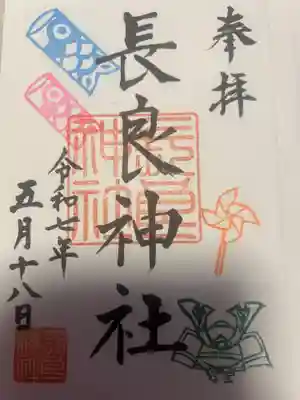 奉拝
長良神社
令和七年
五月十八日